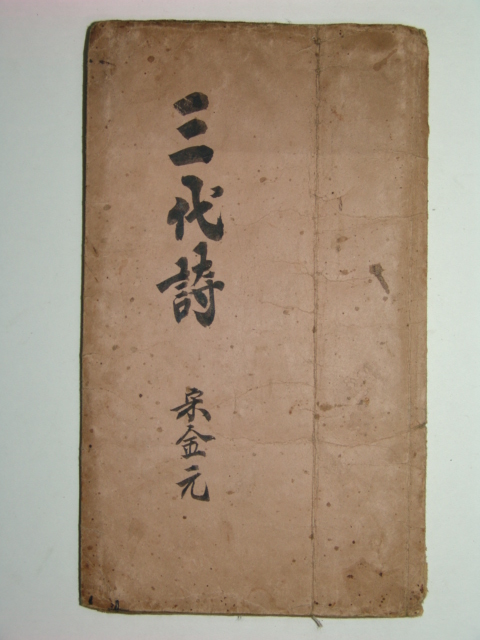 三代詩
宋金元